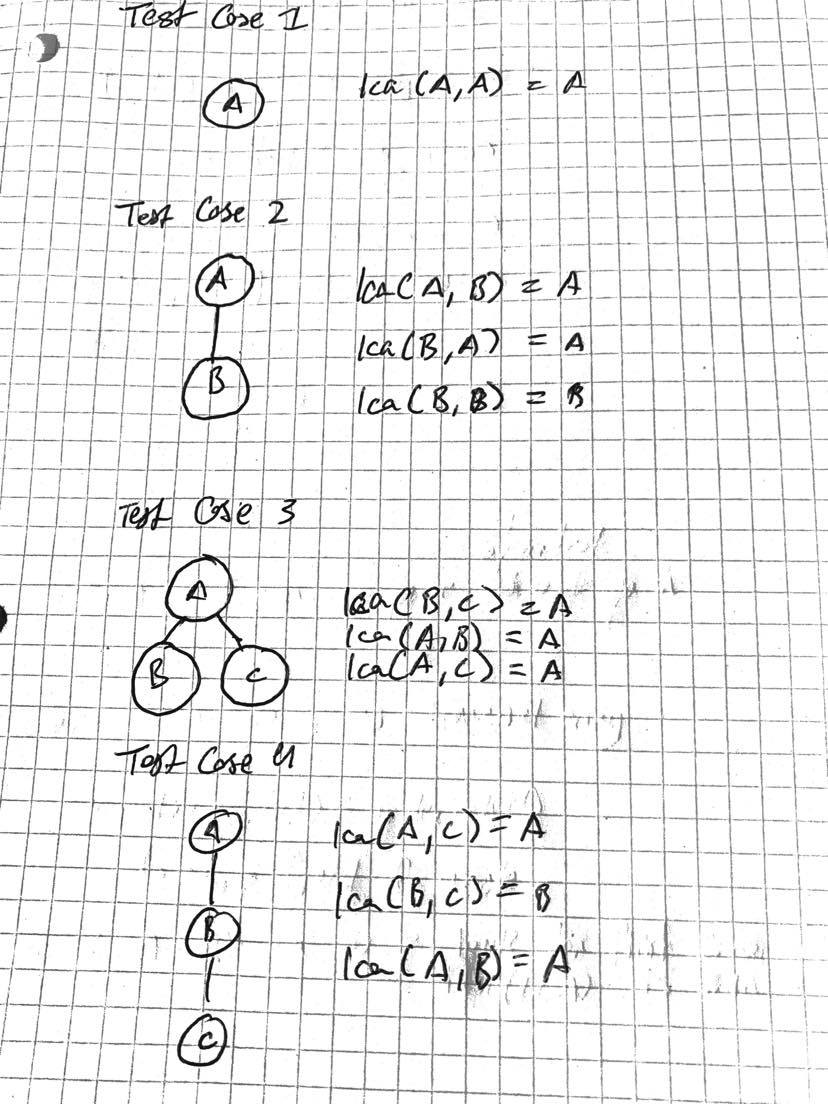 Test Case 1
A
lca (A, A) = A
Test Case 2
A
B
lca (A, B) = A
lca (B, A) = A
lca (B, B) = B
Test Case 3
A
B C
lca (B, C) = A
lca (A, B) = A
lca (A, C) = A
Test Case 4
A
B
C
lca (A, C) = A
lca (B, C) = B
lca (A, B) = A